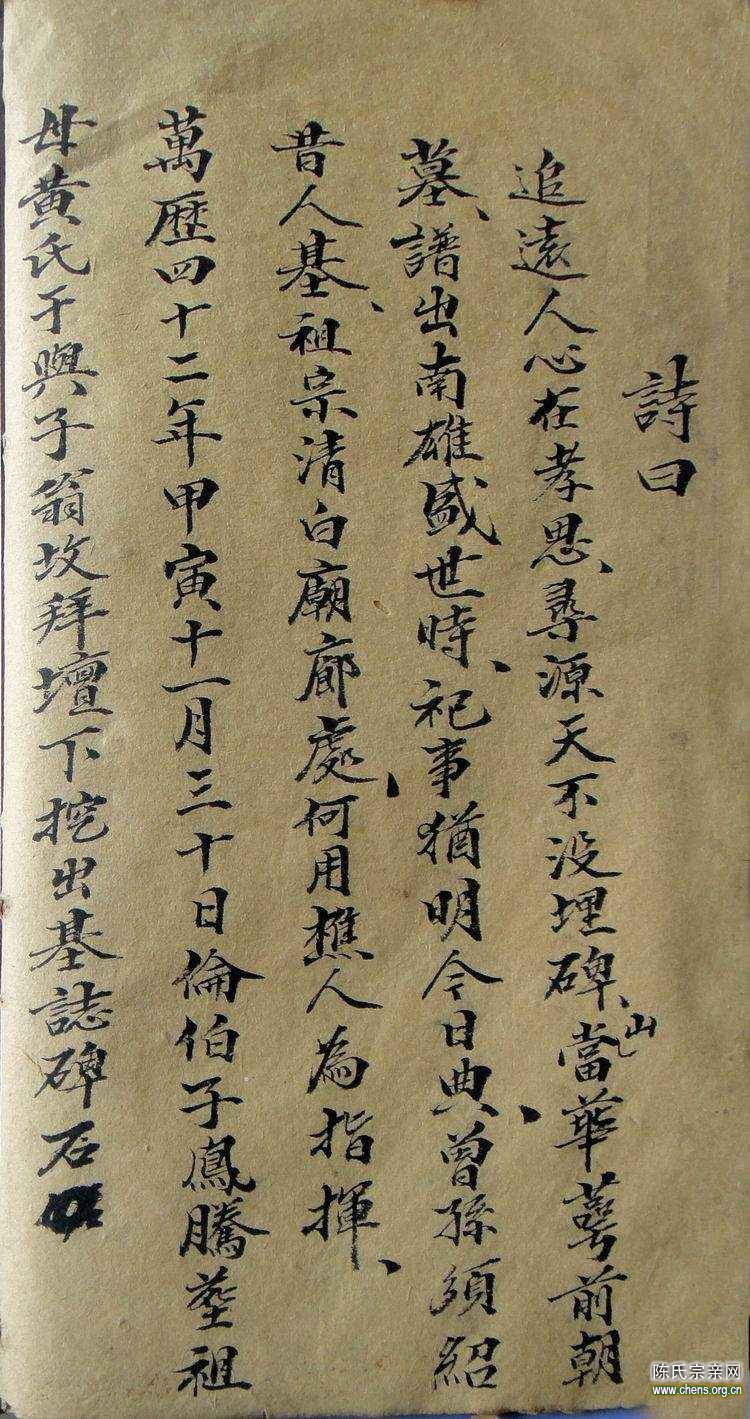 詩曰
追遠人心在孝思、尋源天不没埋碑、山當華萼前朝
墓、譜出南雄盛世時、祀事猶明今日典、曾孫須紹
昔人基、祖宗清白廟廊處、何用樵人為指揮、
萬歷四十二年甲寅十一月三十日倫伯子鳳騰塟祖
母黄氏于與子翁坟拜壇下挖出基誌碑石
陈氏宗亲网
www.chens.org.cn